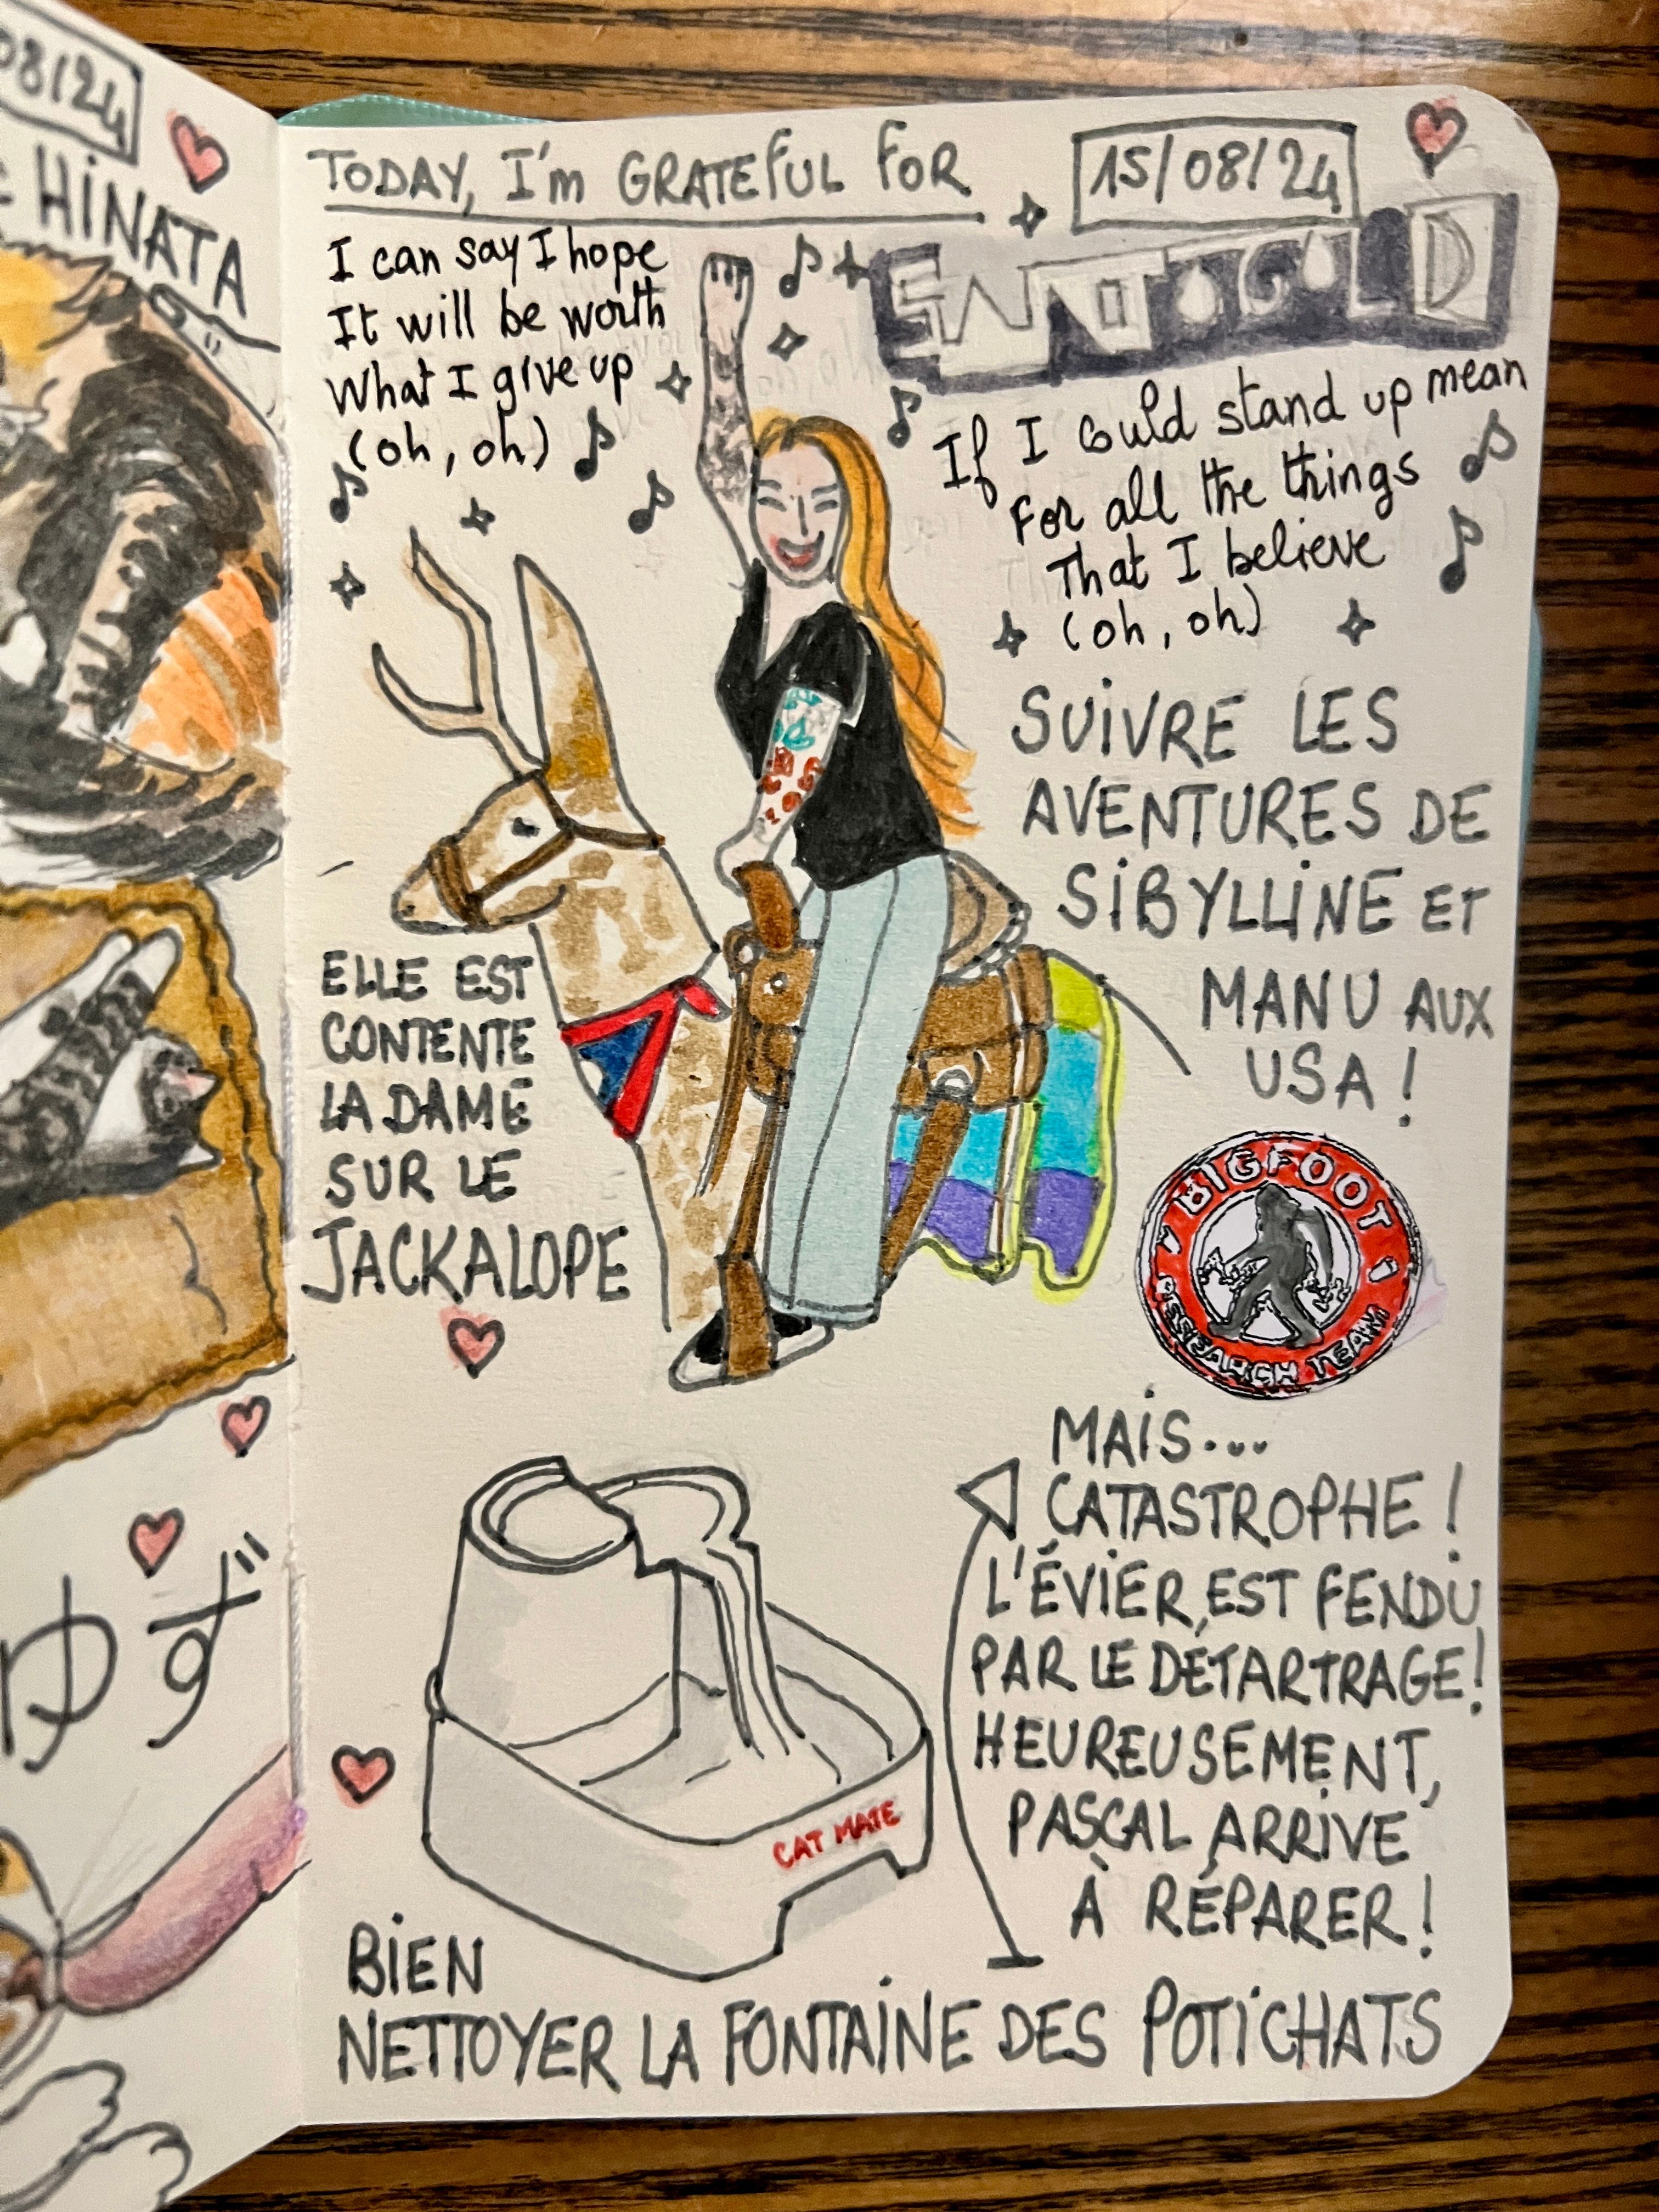 08/24
HINATA
ゆず
TODAY, I'm GRATEFUL FOR
15/08/24
I can say I hope
It will be worth
What I give up
(oh, oh)
SANTOGOLD
If I could stand up mean
For all the things
That I believe
(oh, oh)
SUIVRE LES
AVENTURES DE
SIBYLLINE ET
MANU AUX
USA !
ELLE EST
CONTENTE
LA DAME
SUR LE
JACKALOPE
BIGFOOT
RESEARCH TEAM
MAIS...
CATASTROPHE !
L'ÉVIER EST FENDU
PAR LE DÉTARTRAGE !
HEUREUSEMENT,
PASCAL ARRIVE
À RÉPARER !
CAT MATE
BIEN
NETTOYER LA FONTAINE DES POTICHATS